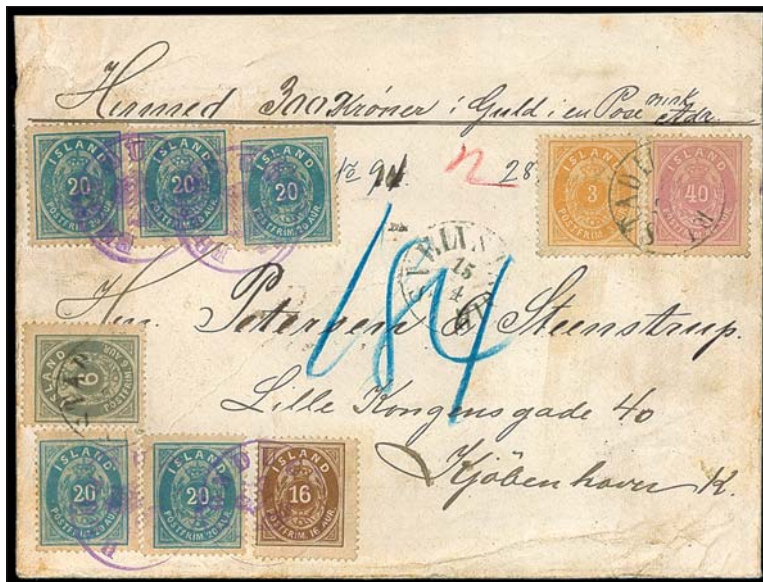 Hermed 300 Kroner i Guld i en Pose mrk Adr.
ISLAND 20 POSTFRIM. 20 AUR.
ISLAND 20 POSTFRIM. 20 AUR.
ISLAND 20 POSTFRIM. 20 AUR.
28
ISLAND 3 POSTFRIM. 3
ISLAND 40 POSTFRIM. AUR.
15
4
184
Hrr. Petersen & Steenstrup.
ISLAND 6 POSTFRIM. 6 AUR.
Lille Kongensgade 40
Kjøbenhavn K.
ISLAND 20 POSTFRIM. 20 AUR.
ISLAND 20 POSTFRIM. 20 AUR.
ISLAND 16 POSTFRIM. 16 AUR.